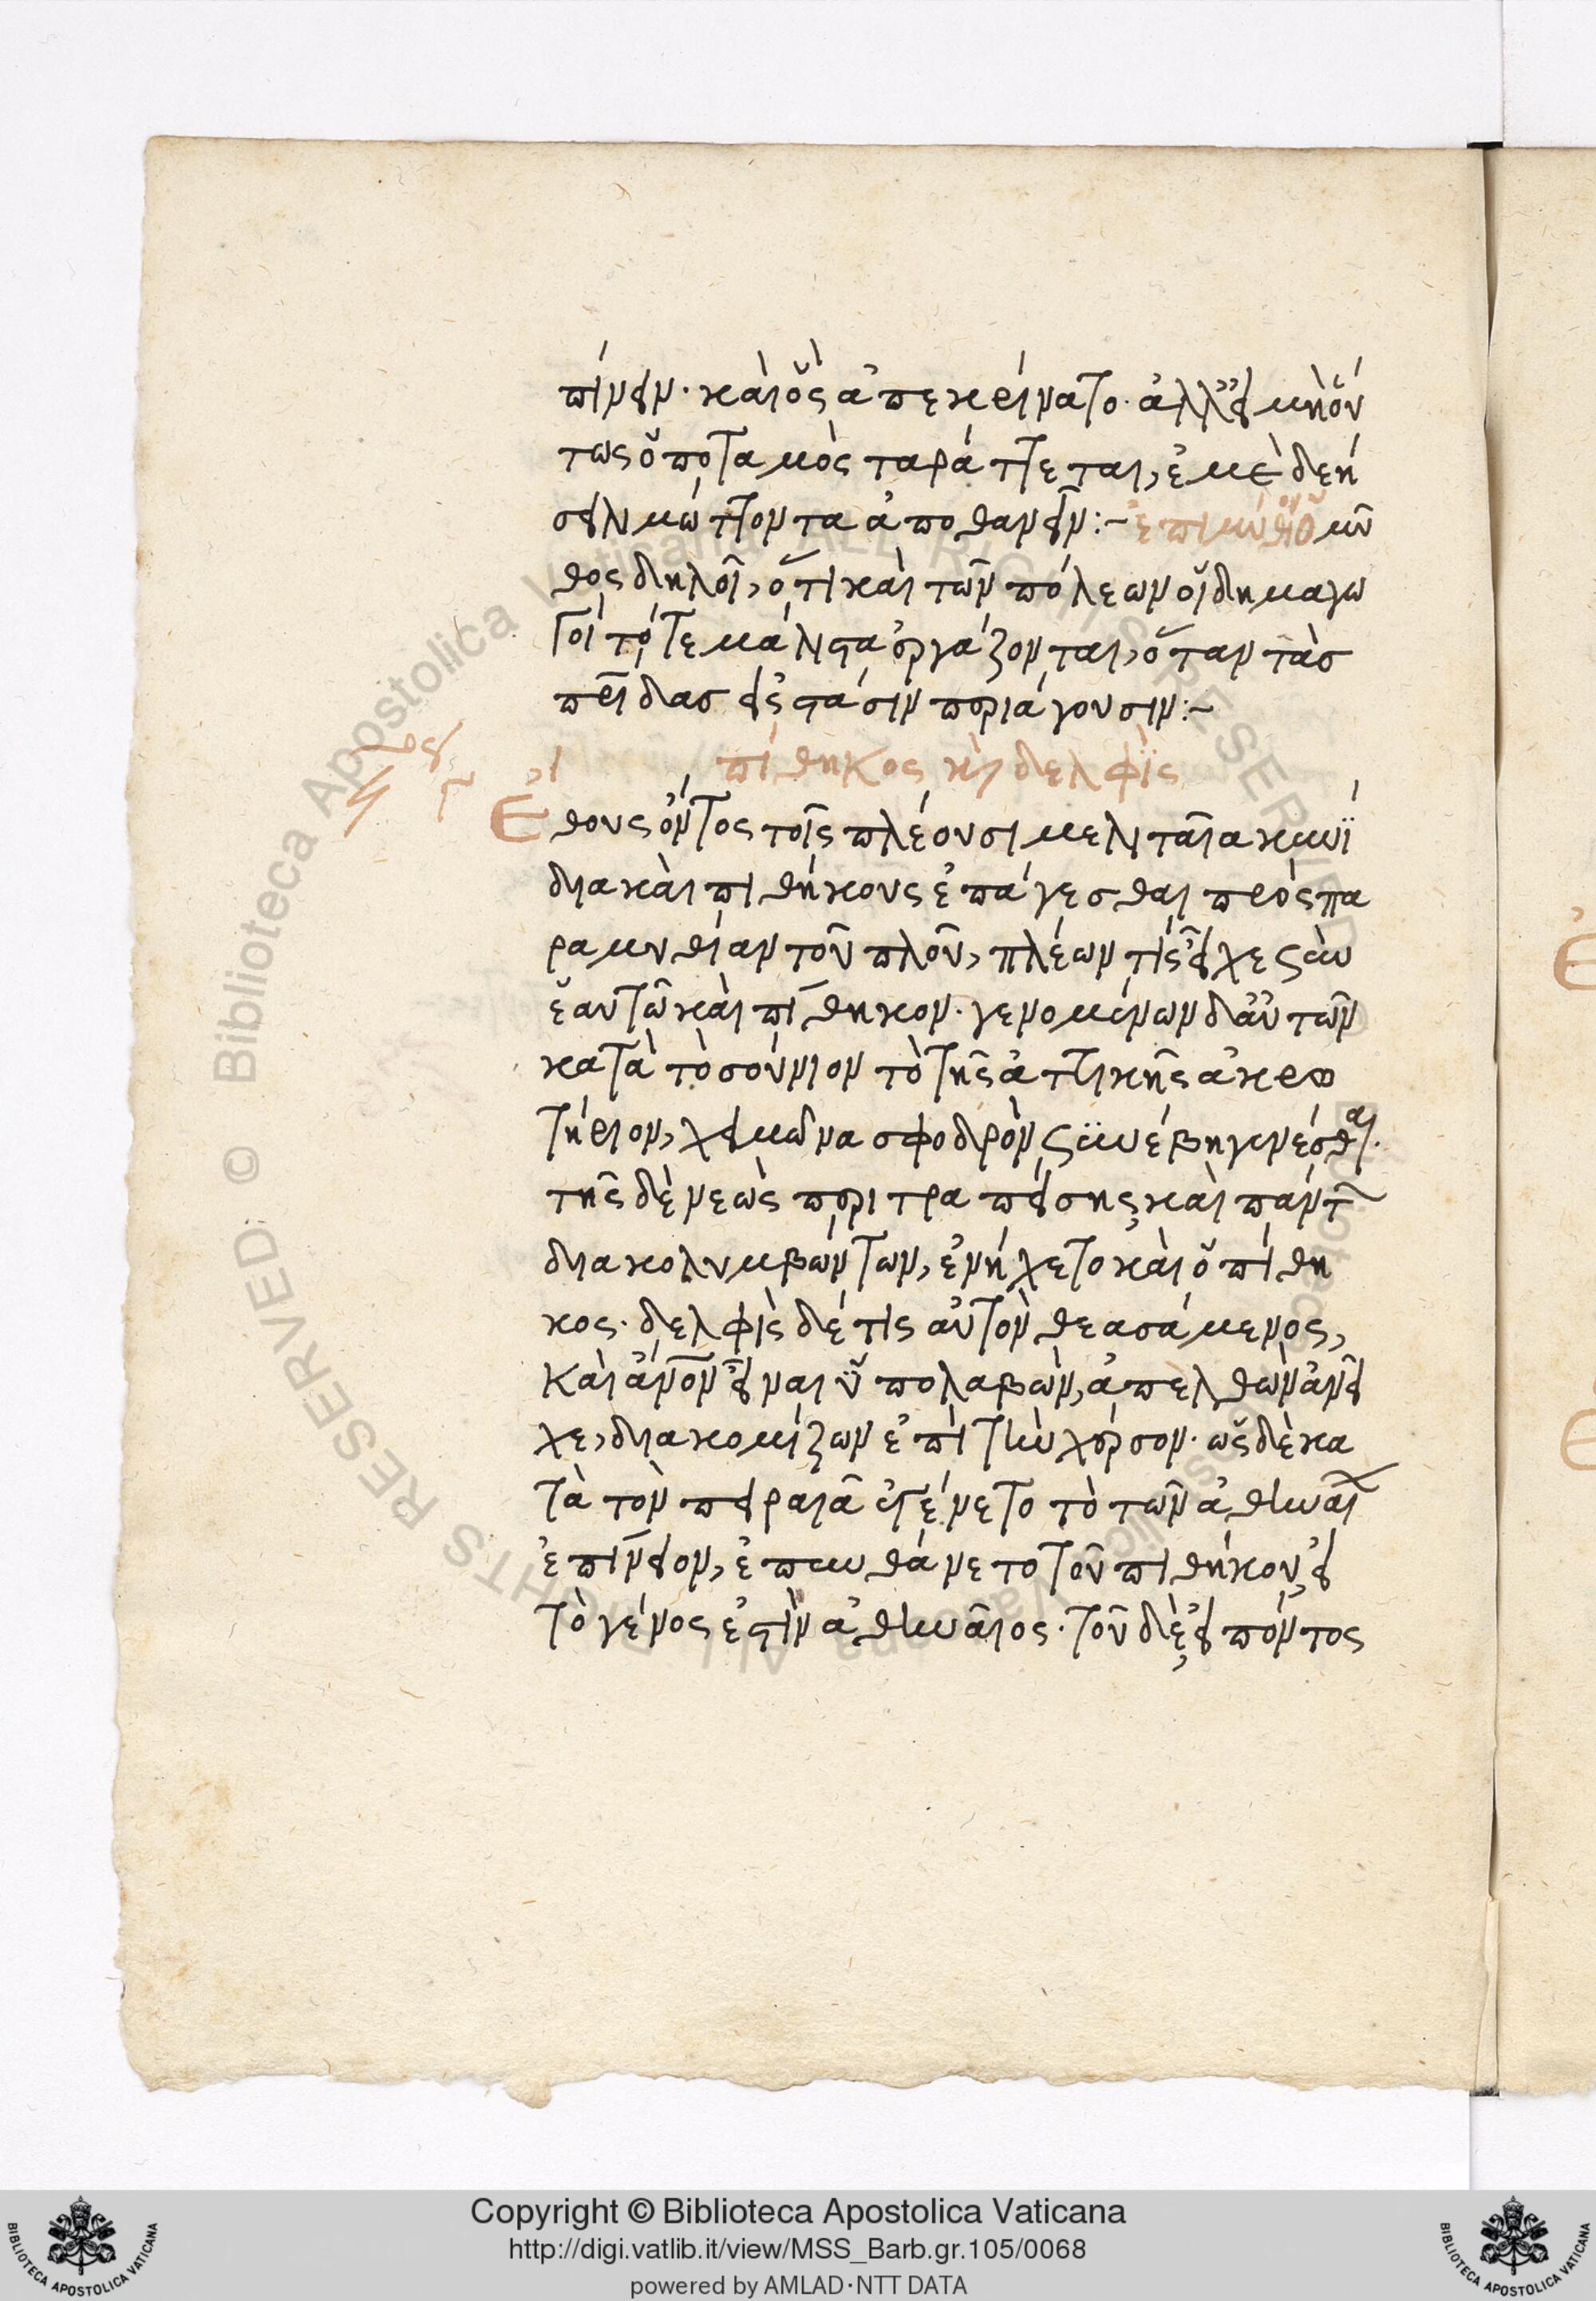 πίνειν· καὶ ὃς ἀπεκρίνατο· ἀλλ' εἰ μὴ οὕ
τως ὁ ποταμὸς ταράττεται, ἐμὲ δεή
σει λιμώττοντα ἀποθανεῖν:- ἐπιμύθιον ὁ μῦ
θος δηλοῖ, ὅτι καὶ τῶν πόλεων οἱ δημαγω
γοὶ τότε μάλιστα ἐργάζονται, ὅταν τὰσ
πρίδασ εἰς στάσιν περιάγουσιν:-
πίθηκος κὴ δελφὶς
Ἔθους ὄντος τοῖς πλέουσι μελιταῖα κυνί
δια καὶ πιθήκους ἐπάγεσθαι πρὸς πα
ραμυθίαν τοῦ πλοῦ, πλέων τὶς εἶχε σὺν
ἑαυτῶ καὶ πίθηκον· γενομένων δ' αὐτῶν
κατὰ τὸ σούνιον τὸ τῆς ἀττικῆς ἀκρω
τήριον, χειμῶνα σφοδρὸν συνέβη γενέσθαι·
τῆς δὲ νεὼς περιτραπείσης, καὶ πάντ
διακολυμβώντων, ἐνήχετο καὶ ὁ πίθη
κος· δελφὶς δέ τις αὐτὸν θεασάμενος,
καὶ ἄνον εἶναι ὑπολαβὼν, ἀπελθὼν ἀνεῖ
χε, διακομίζων ἐπὶ τὴν χέρσον· ὡς δὲ κα
τὰ τὸν πειραιᾶ ἐγένετο τὸ τῶν ἀθηναί
ἐπίνειον, ἐπυνθάνετο τοῦ πιθήκου, εἰ
τὸ γένος ἐστὶν ἀθηναῖος· τοῦ δὲ εἰπόντος
Copyright © Biblioteca Apostolica Vaticana
http://digi.vatlib.it/view/MSS_Barb.gr.105/0068
powered by AMLAD·NTT DATA